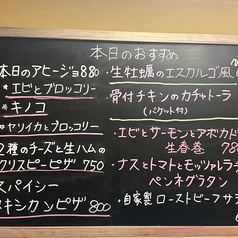 本日のおすすめ
本日のアヒージョ880
*エビとブロッコリー
*キノコ
*ヤリイカとブロッコリー
2種のチーズと生ハムの
クリスピーピザ 750
スパイシー
メキシカンピザ 800
・生牡蠣のエスカルゴ風
・骨付チキンのカチャトーラ
(バケット付)
・エビとサーモンとアボカド
生春巻 78
・ナスとトマトとモッツァレラ
ペンネグラタン
・自家製ローストビーフサ